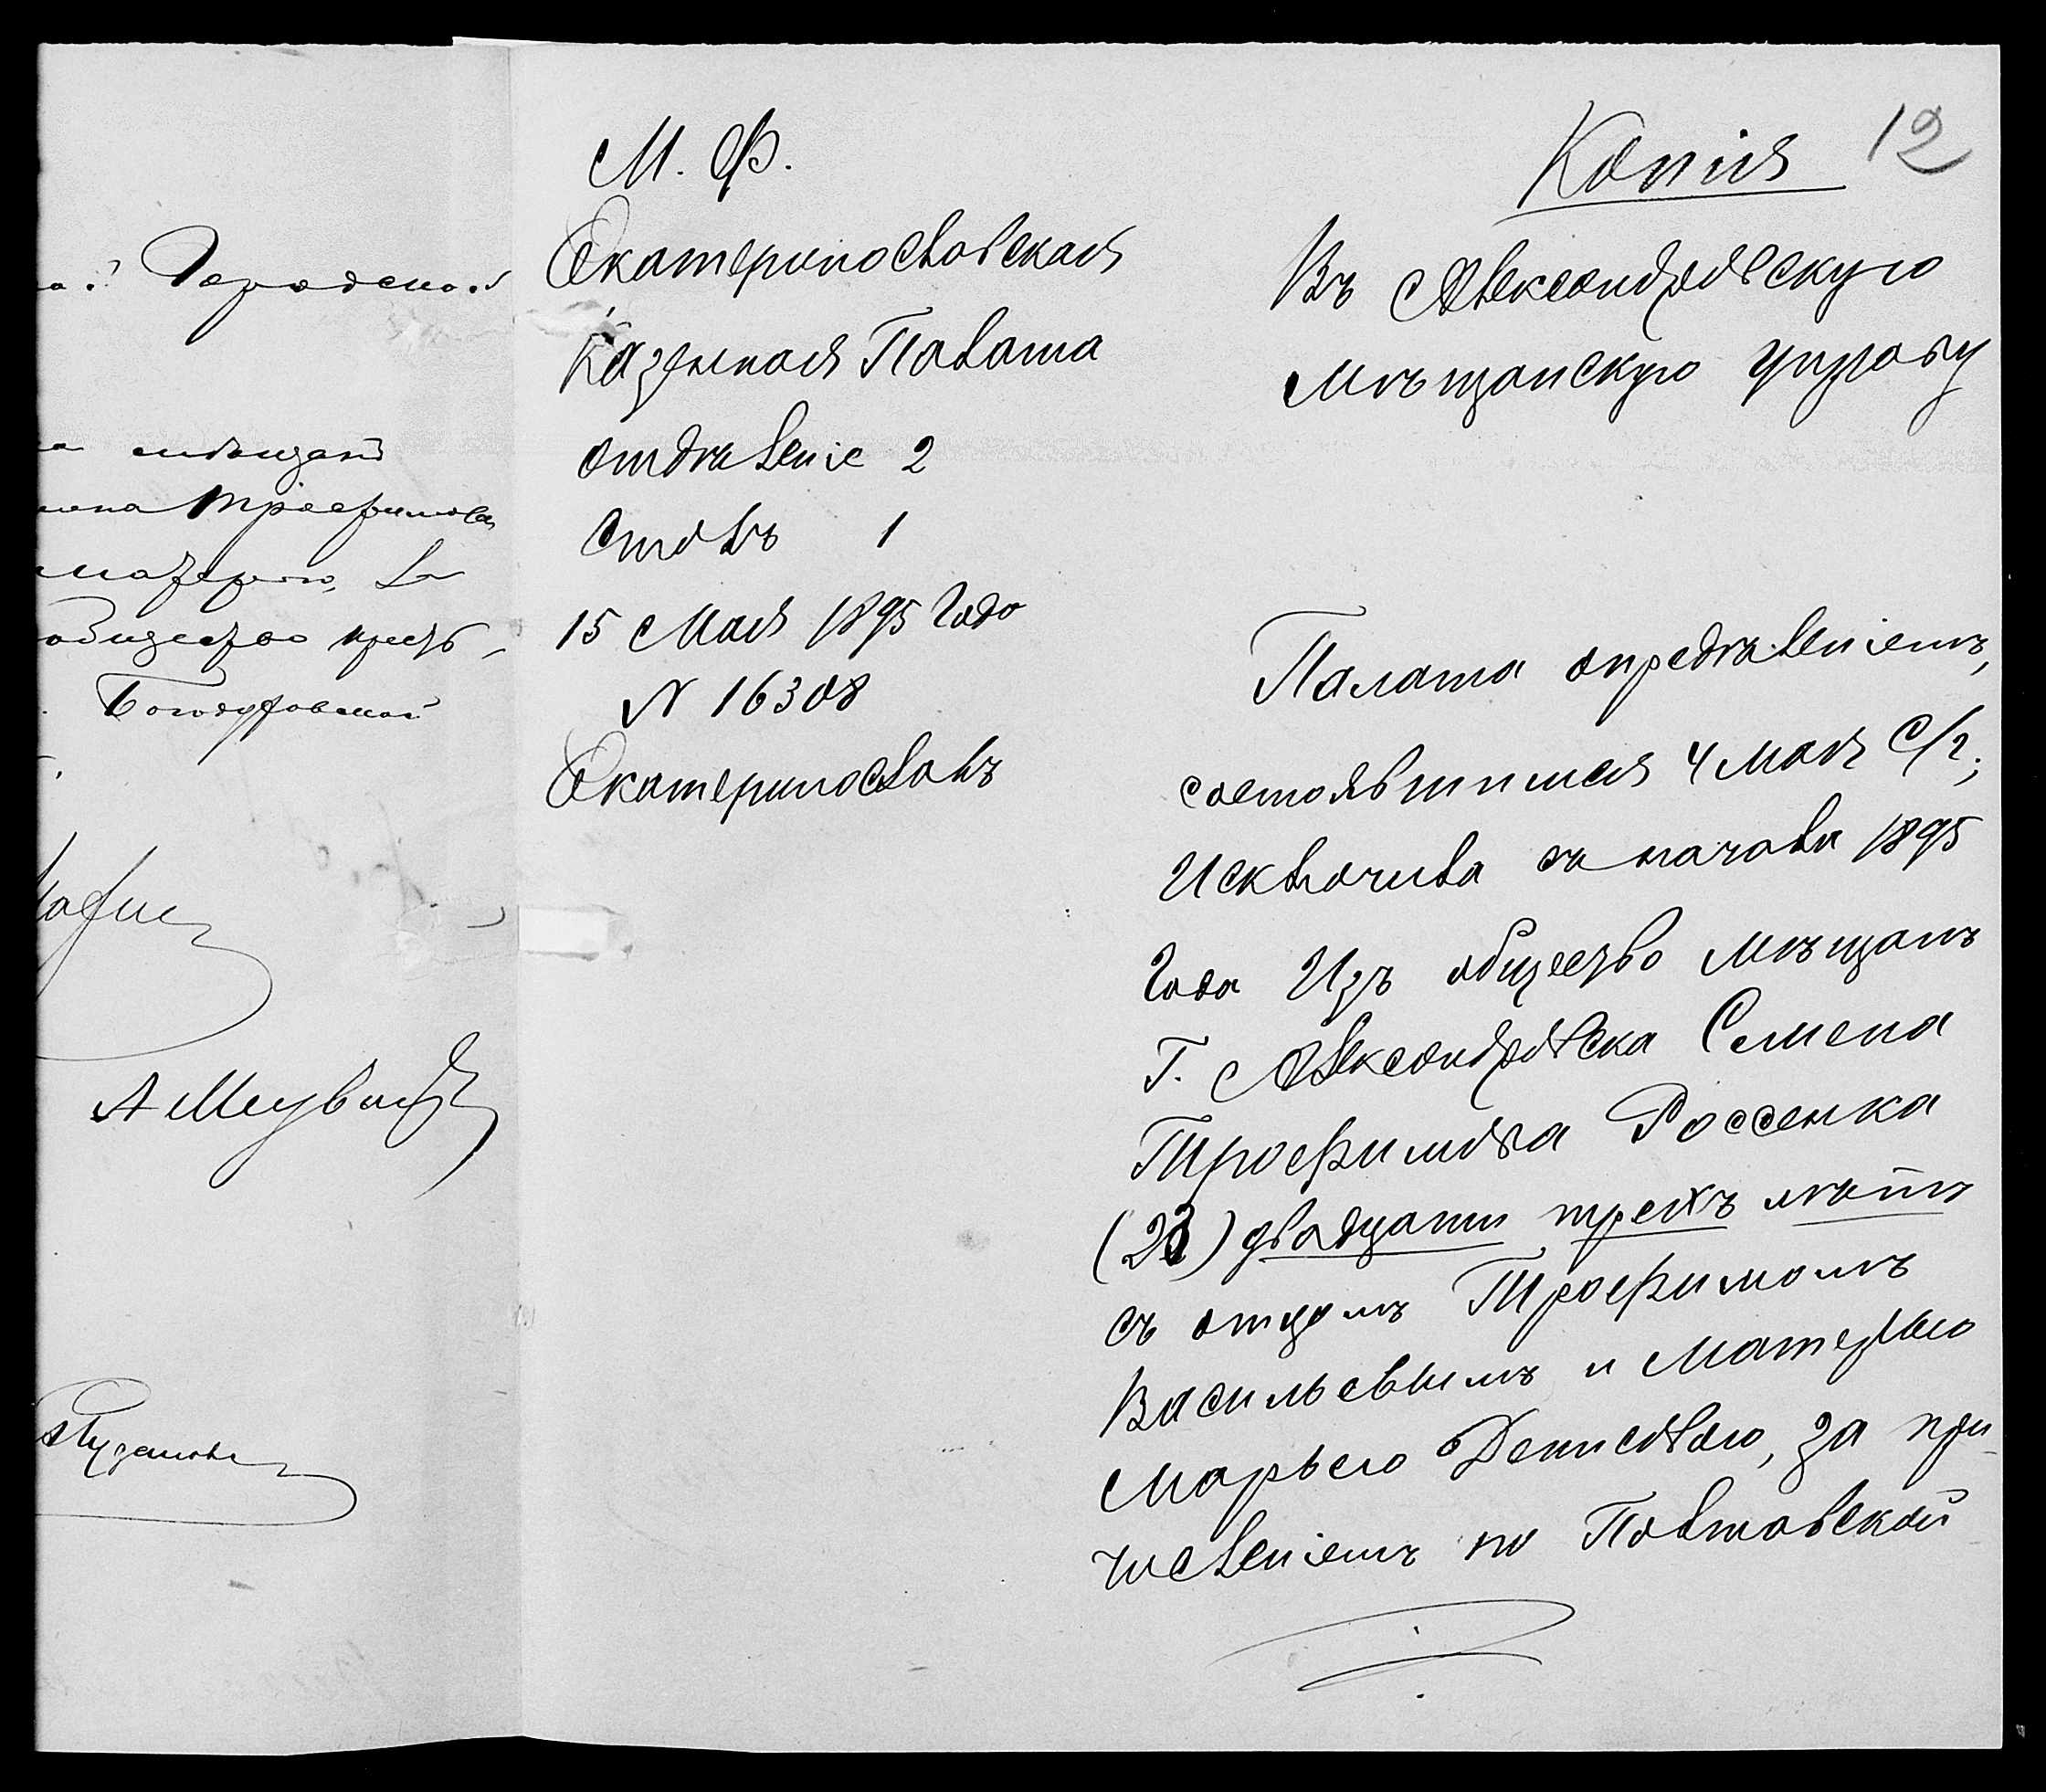 Городской
мѣщан
Трофимова
матерью,
общество крест-
Богодуховской
М. Ф.
Екатеринославская
Казенная Палата
отдѣленіе 2
столъ 1
15 Мая 1895 года
N 16308
Екатеринославъ
Копія 12
Въ Александровскую
мѣщанскую управу
Палата опредѣленіемъ,
состоявшимся 4 мая с/г,
исключила съ начала 1895
года изъ общества мѣщанъ
г. Александровска Семена
Трофимова Россенка
(23) двадцати трехъ лѣтъ
съ отцомъ Трофимомъ
Васильевымъ и матерью
Марьею Денисовою, за при-
численіемъ по Полтавской